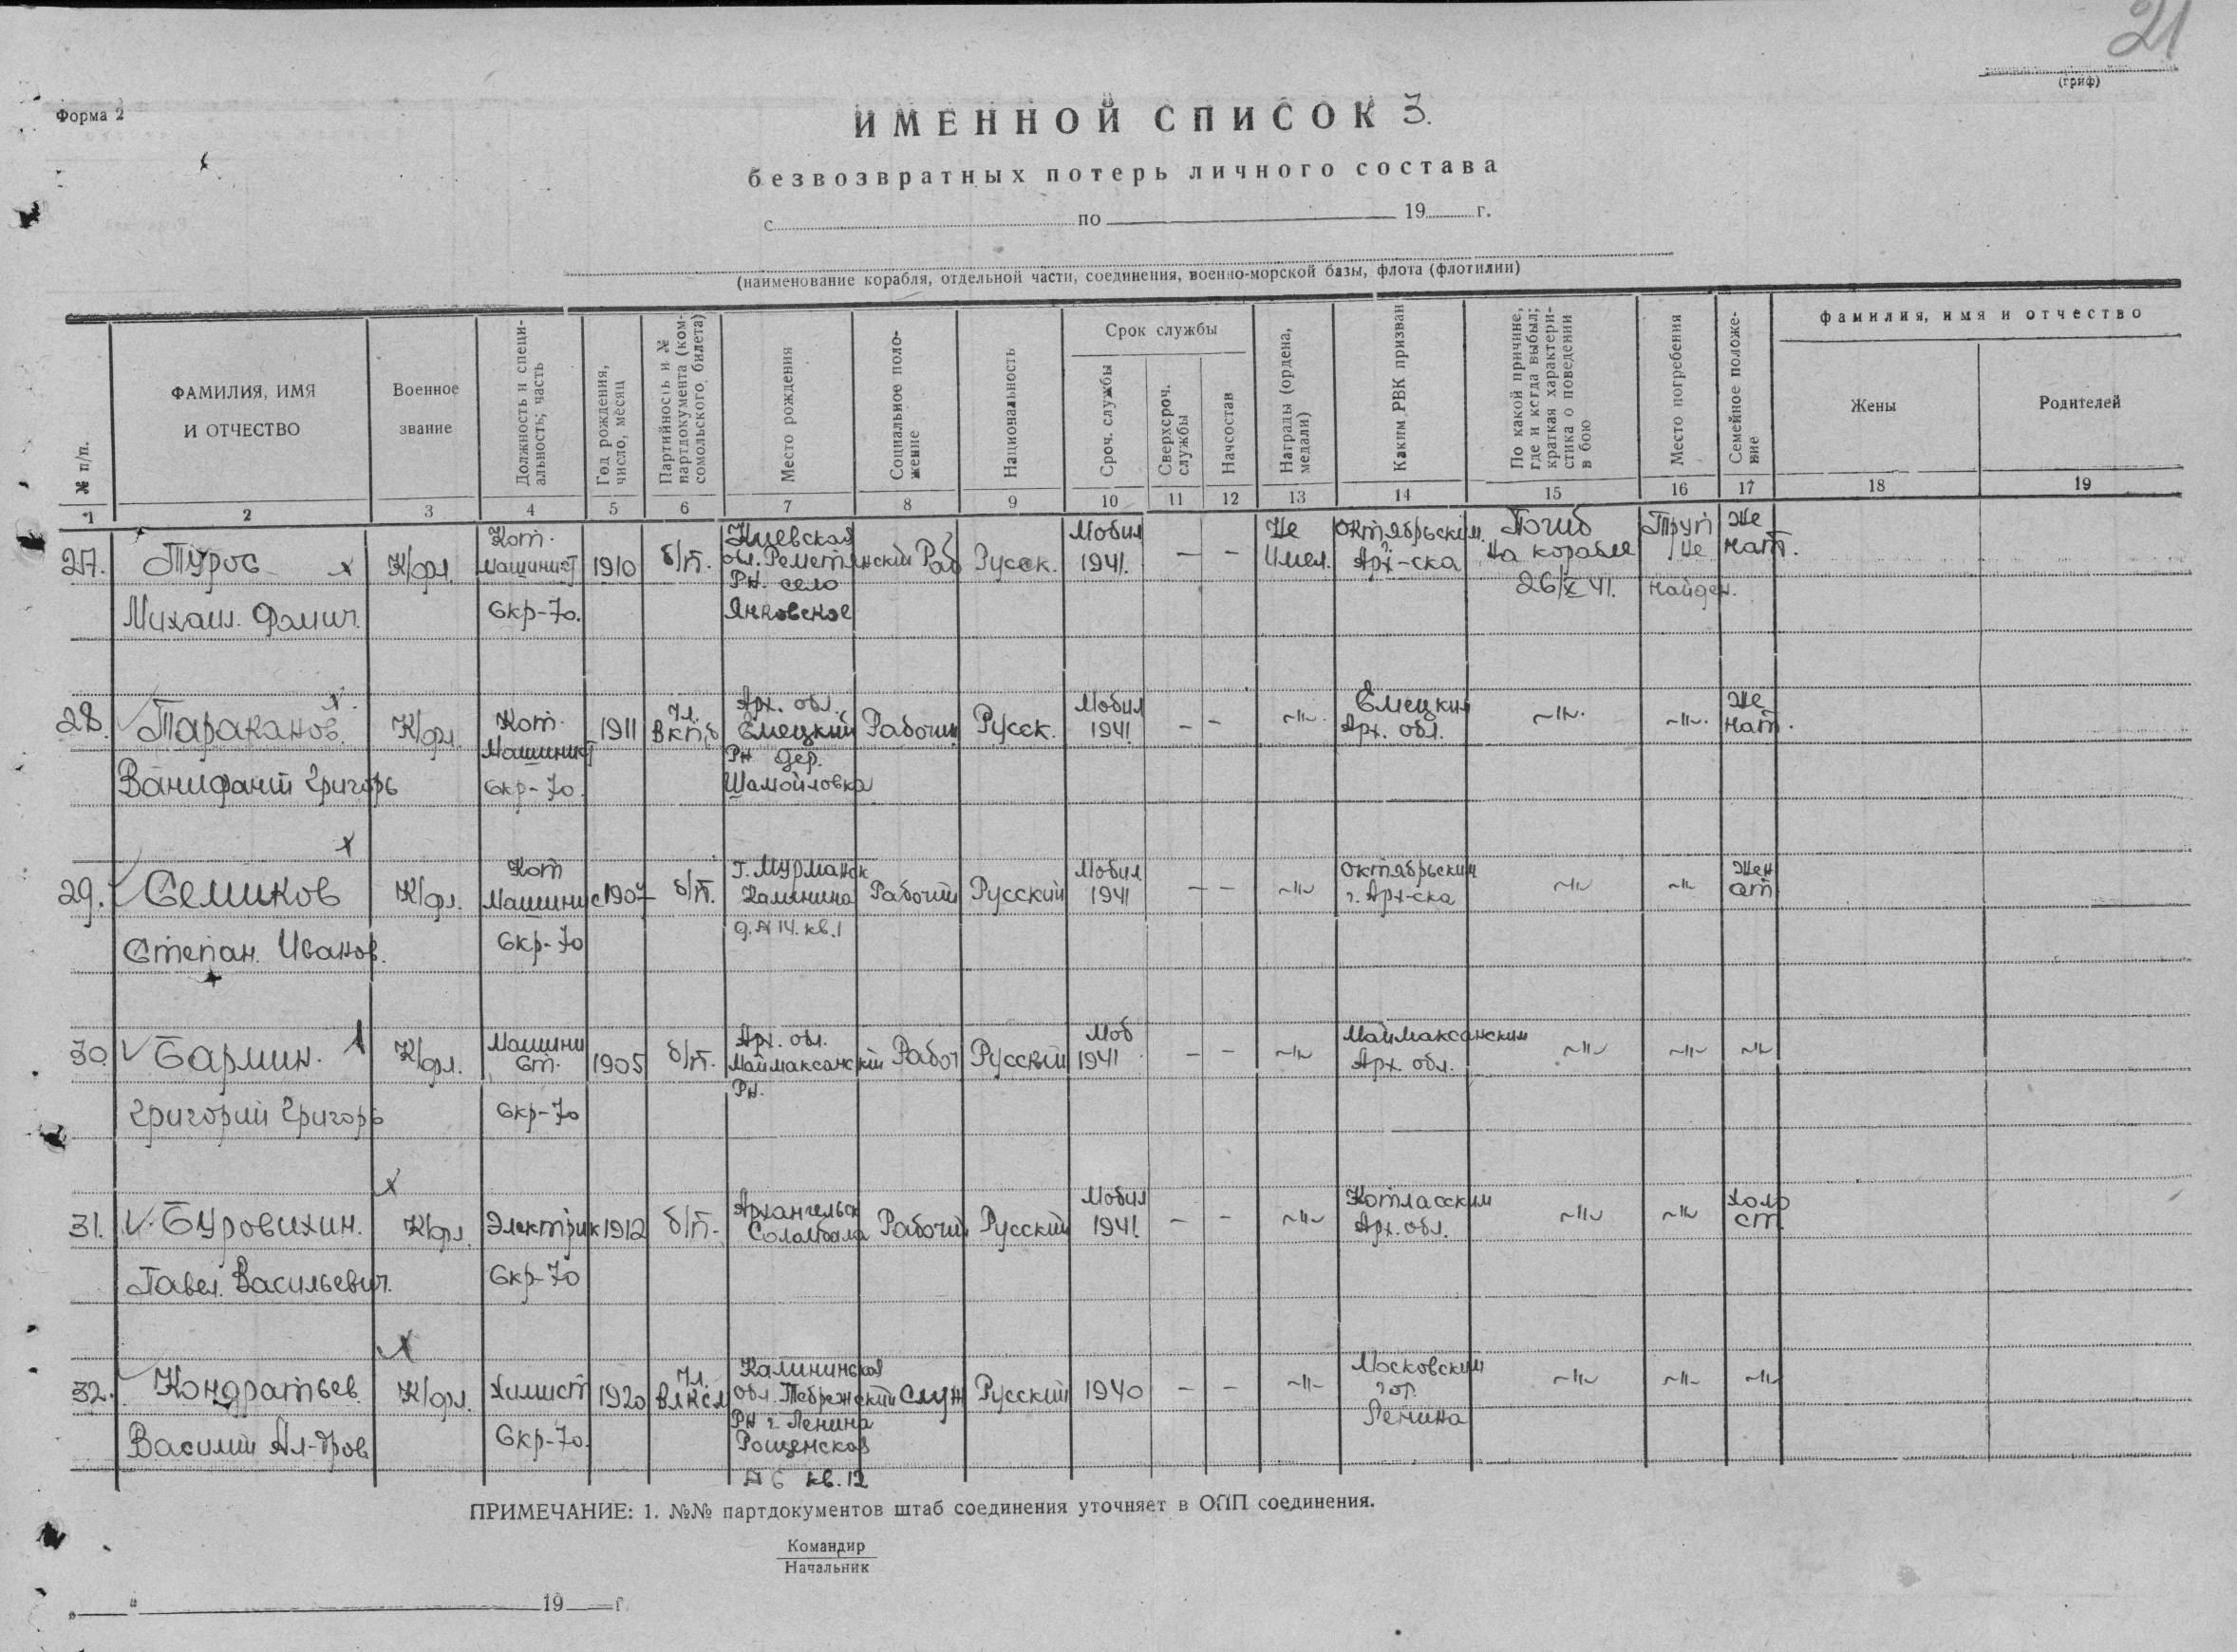 21
(гриф)
Форма 2
ИМЕННОЙ СПИСОК 3.
безвозвратных потерь личного состава
с по 19 г.
(наименование корабля, отдельной части, соединения, военно-морской базы, флота (флотилии)
№ п/п.
ФАМИЛИЯ, ИМЯ
И ОТЧЕСТВО
Военное
звание
Должность и специ-
альность; часть
Год рождения,
число, месяц
Партийность и №
партдокумента (ком-
сомольского билета)
Место рождения
Социальное поло-
жение
Национальность
Срок службы
Сроч. службы
Сверхсроч.
службы
Начсостав
Награды (ордена,
медали)
Каким РВК призван
По какой причине,
где и когда выбыл;
краткая характери-
стика о поведении
в бою
Место погребения
Семейное положе-
ние
фамилия, имя и отчество
Жены
Родителей
1 2 3 4 5 6 7 8 9 10 11 12 13 14 15 16 17 18 19
27. Турос х К/фл. Кот. машинист 1910 б/п. Киевская обл. Реметлнский Раб Русск. Мобил 1941. — — Не имел. Октябрьским Арх-ска Погиб на корабле Труп не Же нат.
Рн. село 26/X 41. найден.
Михаил. Фомич. Скр-70. Янковское
28. Тараканов. х. К/фл. Кот. Машинист 1911 Чл. ВКПб Арх. обл. Емецкий Рабочий Русск. Мобил 1941 — — ~"~. Емецкий Арх. обл. ~"~. ~"~. Же нат.
Рн дер.
Ванифант Григорь Скр-70. Шамойловка
х
29. Семиков К/фл. Кот Машинис 1907 б/п. г. Мурманск Калинина Рабочий Русский Мобил 1941 — — ~"~ Октябрьским г. Арх-ска ~"~ ~"~ Жен ат
д. № 14. кв. 1
Степан. Иванов. Скр-70
30. Бармин. К/фл. Машини ст. 1905 б/п. Арх. обл. Маймаксанский Рабоч Русский Моб 1941 — — ~"~ Маймаксанским Арх. обл. ~"~ ~"~ ~"~
Рн.
Григорий Григорь Скр-70
х
31. Буровихин. К/фл. Электрик 1912 б/п. Архангельск Соломбала Рабочий Русский Мобил 1941. — — ~"~ Котласским Арх. обл. ~"~ ~"~ холо ст.
Павел. Васильевич. Скр-70
х
32. Кондратьев К/фл. Химист 1920 Чл. ВЛКСМ Калининская обл. Тебрежский Служ Русский 1940 — — ~"~ Московским гор. Ленина ~"~ ~"~ ~"~
Рн г. Ленина
Василий Ал-дров Скр-70. Рощенская
№ 6 кв. 12
ПРИМЕЧАНИЕ: 1. №№ партдокументов штаб соединения уточняет в ОПП соединения.
Командир
Начальник
„ “ 19 г.